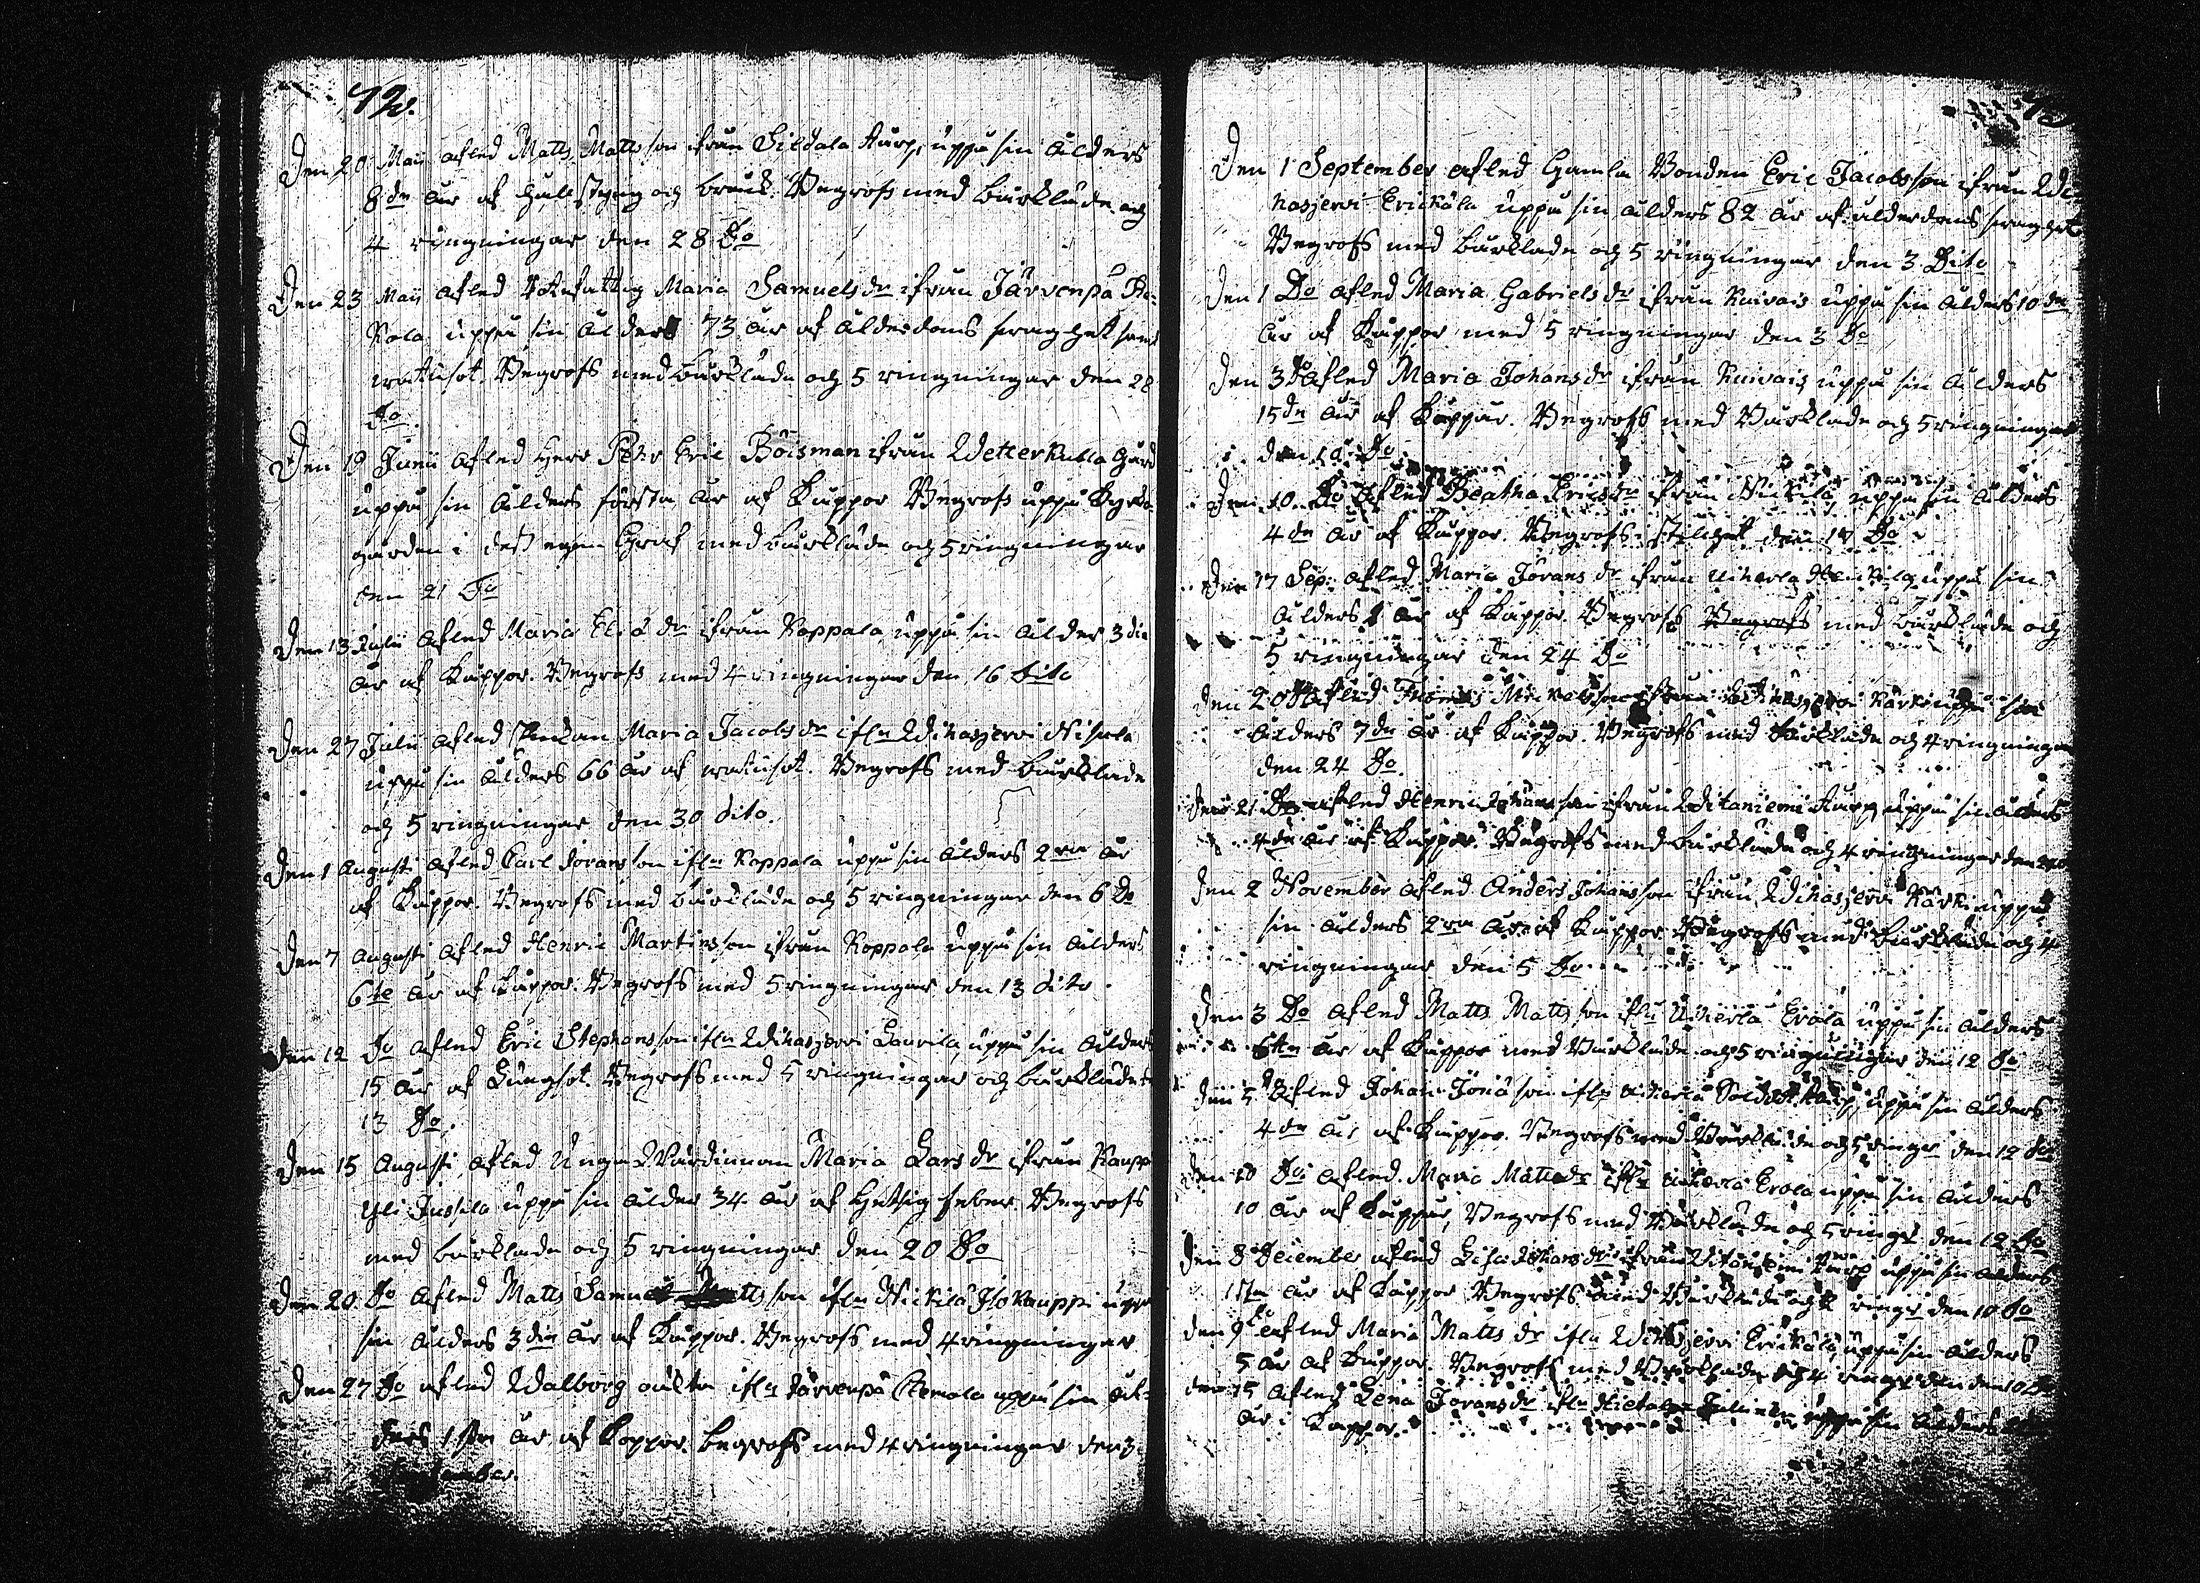 72.
Den 20 Maji afled Matts Mattsson ifrån Sildala torp, uppå sin ålders
8de år af håll styng och bråck. Begrofs med bårkläde och
4 ringningar den 28 Do
Den 23 Maij afled Maria Samuelsdr ifrån Järvenpä
kola uppå sin ålders 73 år af ålderdoms
Begrofs med bårkläde och 5 ringningar den 28
Do.
Den 19 Junii afled Herr Pehr Eric Boisman ifrån Wetterkulla Gård
uppå sin ålders första år af Kåppor Begrofs uppå Kyrko-
gården i dess egen Graf med bårkläde och 5 ringningar
den 21 Do
Den 13 Julii afled Maria ifrån Koppala uppå sin ålder 3die
år af Kåppor. Begrofs med 4 ringningar den 16 Dito
Den 27 Julii afled Enkan Maria Jacobsdr ifrn Wihasjerwi
uppå sin ålders 66 år af Begrofs med bårkläde
och 5 ringningar den 30 dito.
Den 1 Augusti afled Carl Jöransson ifrn Koppala uppå sin ålders 2ra år
af Kåppor. Begrofs med bårkläde och 5 ringningar den 6 Do
Den 7 Augusti afled Henric Martinsson ifrån Koppala uppå sin ålders
6te år af Kåppor. Begrofs med 5 ringningar den 13 dito.
Den 12 Do afled Eric Stephansson ifrn Wihasjerwi Laurila, uppå sin ålders
15 år af Lungsot. Begrofs med 5 ringningar och bårkläde
13 Do.
Den 15 Augusti afled Unga Wärdinnan Maria Larsdr ifrån Kaupp
Yli Jussila uppå sin ålder 34 år af hetsig feber Begrofs
med bårkläde och 5 ringningar den 20 Do
Den 20 Do afled Matts ifrn Nickilä uppå
sin ålders 3die år af Kåppor. Begrofs med 4 ringningar
Den 27 Do afled Walborg ifrn Järvenpä uppå sin ål-
ders 1sta år, af Koppor begrofs med 4 ringningar den 3
September.
Den 1 September afled Gamla Bonden Eric Jacobsson ifrån Wi-
hasjerwi Erickälä uppå sin ålders 82 år af ålderdoms
Begrofs med bårkläde och 5 ringningar den 3 Dito
Den 1 Do afled Maria Gabrielsdr ifrån Kaivais uppå sin ålders 10de
år af Kåppor med 5 ringningar den 3 Do
Den 3 Do afled Maria Johansdr ifrån Kaivais uppå sin ålders
15de år af Kåppor. Begrofs med Bårkläde och 5 ringningar
den Do
Den 10 Do afled Beatha Ericsdr ifrån Nickilä, uppå sin ålders
4de år af Kåppor. Begrofs i stillhet den 17 Do
Den 17 Sep: afled Maria Jöransdr ifrån uppå sin
ålders 1 år af Kåppor. Begrofs Begrofs med bårkläde och
5 ringningar den 24 Do
Den 20 Do afled Thomas Michelsson ifrån Wihasjerwi Kärki uppå sin
ålders 7de år af Kåppor. Begrofs med bårkläde och 4 ringningar
den 24 Do.
Den 21 Do afled Henric Johansson ifrån uppå sin ålders
4de år af Kåppor. Begrofs med bårkläde och 4 ringningar den
Den 2 November afled Anders Johansson ifrån Wihasjerwi Kärki uppå
sin ålders 2ra år af Kåppor Begrofs med bårkläde och 4
ringningar den 5 Do
Den 3 Do afled Matts Mattsson ifrn Uiherla Erola uppå sin ålders
år af Kåppor med Bårkläde och 5 ringningar den 12 Do
Den 5 Do afled Johan ifrn Uiherla Soldat torp, uppå sin ålders
4de år af Kåppor. Begrofs med Bårkläde och 5 ringr den 12 Do
Den 10 Do afled Maria Mattsdr ifrn Uiherla Erola uppå sin ålders
10 år af Kåppor, Begrofs med Bårkläde och 5 ringr den 12 Do
Den 8 December afled Lisa Johansdr ifrån torp uppå sin ålders
år af Kåppor Begrofs med Bårkläde och ringr den 10 Do
Den 9 Do afled Maria Mattsdr ifrn Wihasjerwi Erickälä, uppå sin ålders
5 år af Kåppor. Begrofs med Bårkläde och 4 ringr den den 10 Do
den 15 afled Lena Jöransdr ifrn uppå sin ålders
år i Kåppor.